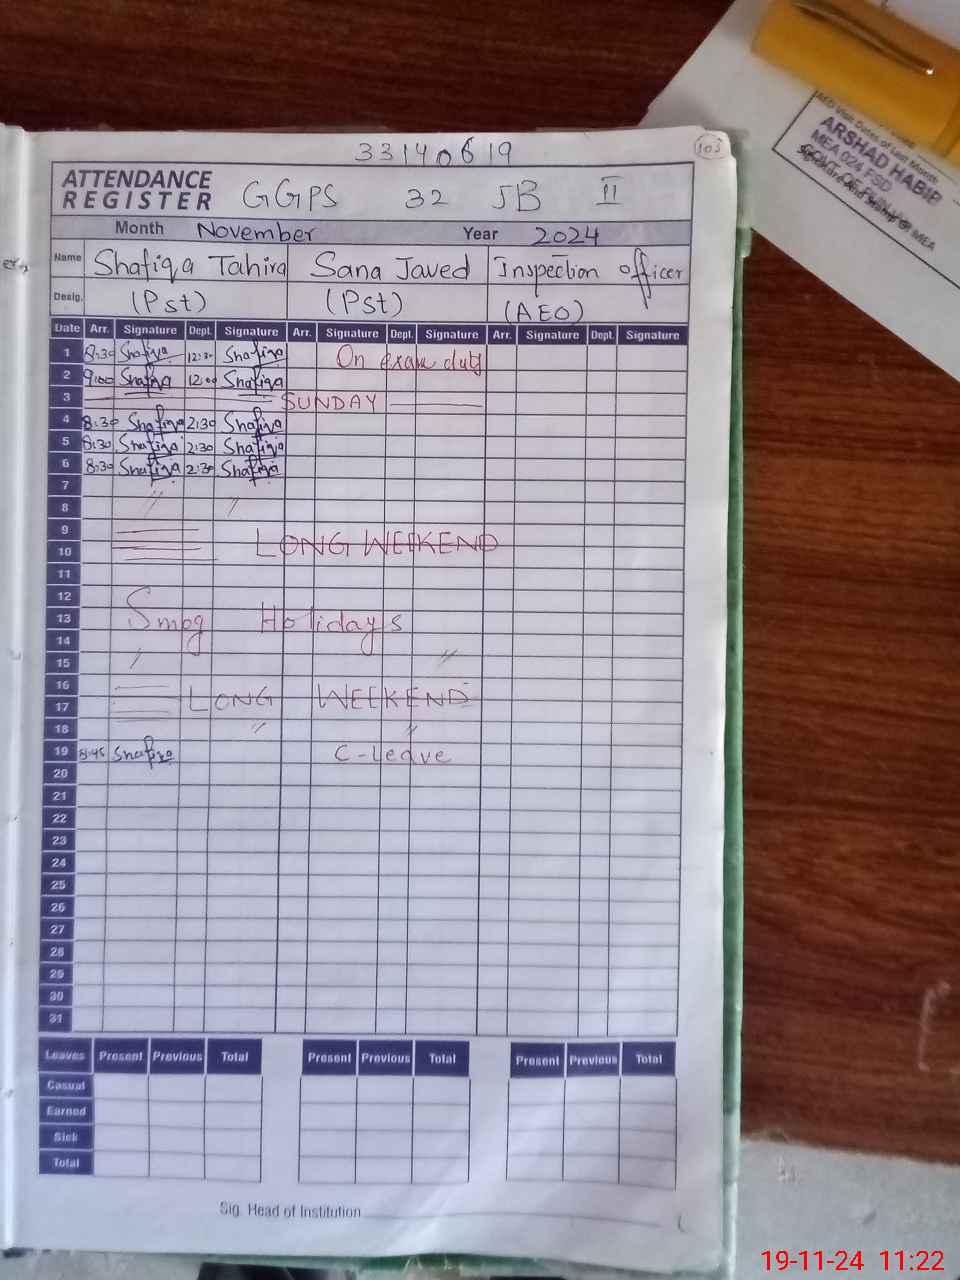 33140619
103
ATTENDANCE REGISTER GGPS 32 JB II
Month November Year 2024
Name Shafiqa Tahira Sana Javed Inspection officer
Desig. (Pst) (Pst) (AEO)
Date Arr. Signature Dept. Signature Arr. Signature Dept. Signature Arr. Signature Dept. Signature
1 8:30 Shafiqa 12:30 Shafiqa On exam duty
2 9:00 Shafiqa 12:00 Shafiqa
3 SUNDAY
4 8:30 Shafiqa 2:30 Shafiqa
5 8:30 Shafiqa 2:30 Shafiqa
6 8:30 Shafiqa 2:30 Shafiqa
7
8
9
LONG WEEKEND
10
11
12
13 Smog Holidays
14
15
16
LONG WEEKEND
17
18
19 8:45 Shafiqa C-Leave
20
21
22
23
24
25
26
27
28
29
30
31
Leaves Present Previous Total Present Previous Total Present Previous Total
Casual
Earned
Sick
Total
Sig. Head of Institution
AEO Visit Dates of Last Month
ARSHAD HABIB
MEA 024 FSD
MEA
19-11-24 11:22